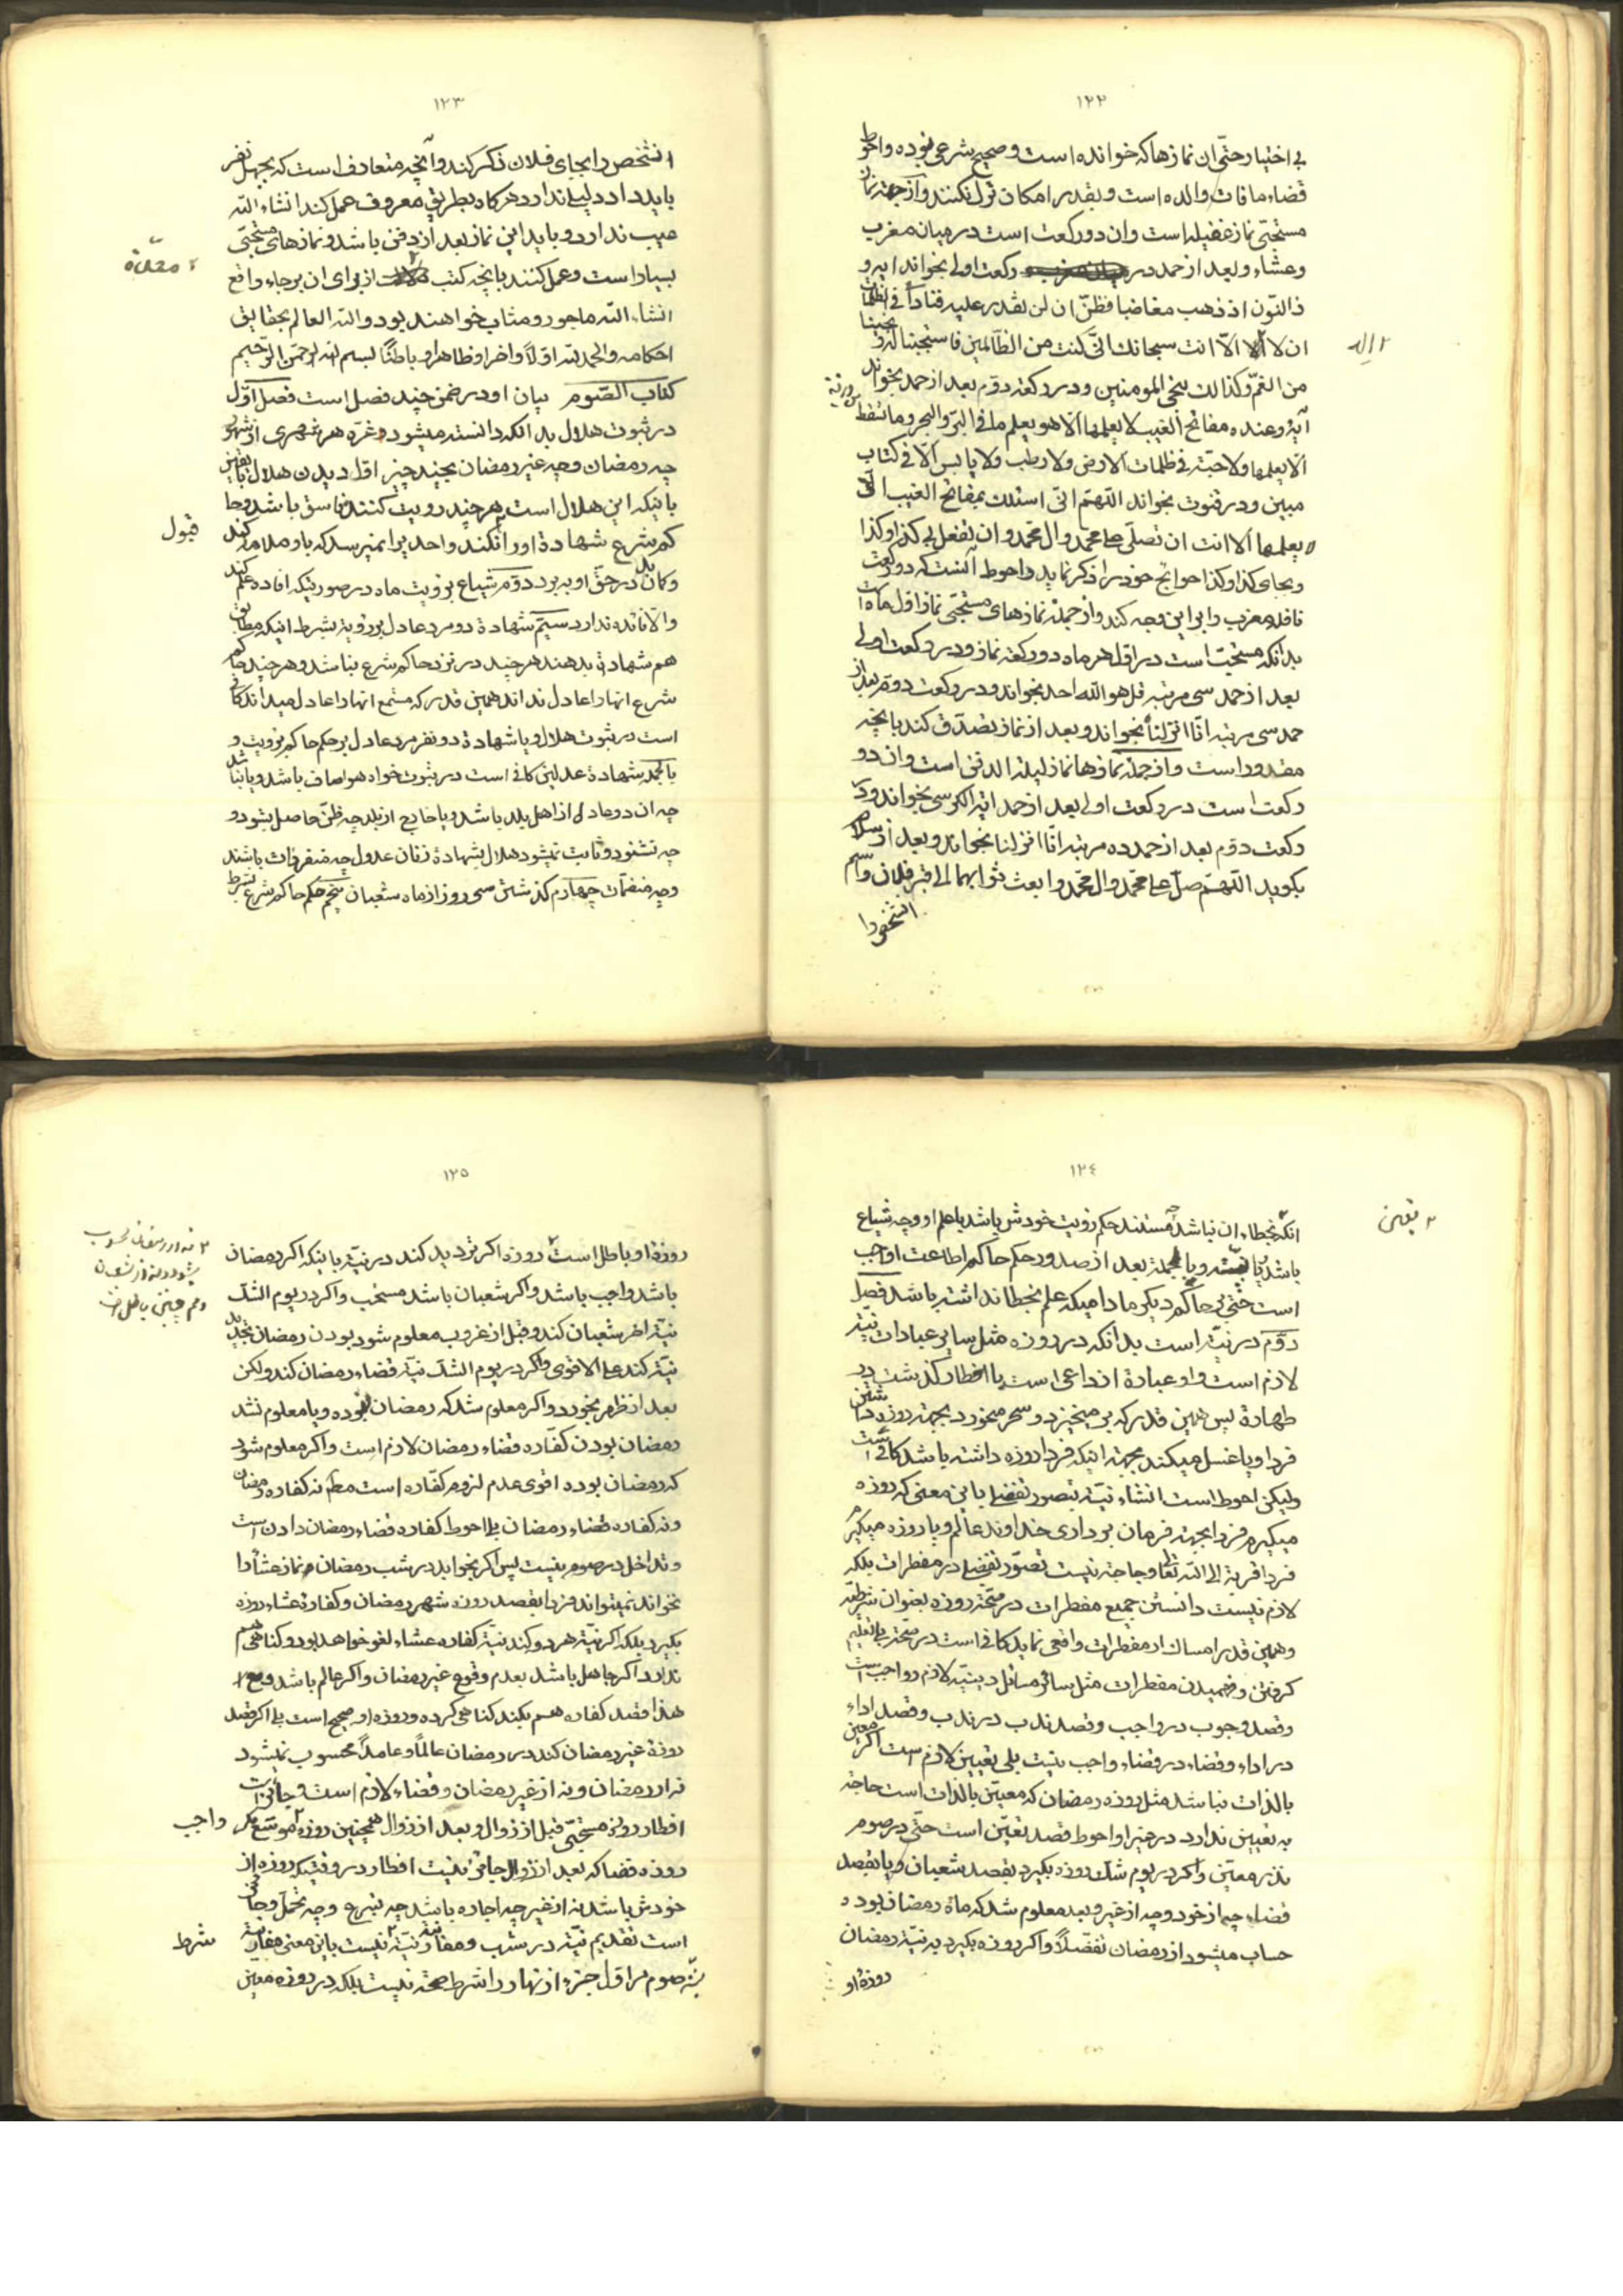 ١٢٢
بی اختیار حتّی ان نمازها که خوانده است و صحیح شرعی نبوده و احوط
قضاء مافات والده است و بقدر امکان ترك نکنند و از جمله نماز
مستحبّی نماز غفیله است وان دو رکعت است در میان مغرب
وعشاء و بعد از حمد در رکعت اولی بخواند ایه و
ذالنّون اذ ذهب مغاضبا فظنّ ان لن نقدر علیه فنادا فی الظلمات
ان لا اله الاّ انت سبحانك انّی کنت من الظالمین فاستجبنا له و نجینا
٢ اله
من الغمّ وکذالك ننجی المومنین و در رکعة دوّم بعد از حمد بخواند
آیهٔ وعنده مفاتح الغیب لا یعلمها الاّ هو یعلم ما فی البرّ والبحر وما تسقط
من ورقة
الاّ یعلمها ولا حبّة فی ظلمات الارض ولا رطب ولا یابس الاّ فی کتاب
مبین و در قنوت بخواند اللّهمّ انّی اسئلك بمفاتح الغیب الّتی
لا یعلمها الاّ انت ان تصلّی علی محمّد وال محمّد وان تفعل بی کذا وکذا
وبجای کذا وکذا حوائج خود را ذکر نماید و احوط آنست که دو رکعت
نافله مغرب را براین وجه کند و از جمله نمازهای مستحبّی نماز اول ماه است
بدانکه مستحبّ است در اوّل هر ماه دو رکعة نماز و در رکعت اولی
بعد از حمد سی مرتبه قل هو الله احد بخواند و در رکعت دوّم بعد از
حمد سی مرتبه انّا انزلناه بخواند و بعد از نماز تصدّق کند بانچه
مقدور است و از جمله نمازها نماز لیلة الدفن است وان دو
رکعت است در رکعت اولی بعد از حمد ایة الکرسی بخواند و در
رکعت دوّم بعد از حمد ده مرتبه انّا انزلنا بخواند و بعد از سلام
بکوید اللّهمّ صلّ علی محمّد وال محمّد وابعث ثوابهما الی قبر فلان و اسم
انشخص را
١٢٣
انشخص را بجای فلان ذکر کند و آنچه متعارف است که بچهل نفر
باید داد دلیلی ندارد هرکاه بطریق معروف عمل کند انشاء الله
عیب ندارد و باید این نماز بعد از دفن باشد و نمازهای مستحبّی
بسیار است و عمل کنند بانچه کتب از برای ان برجاء واقع
٢ معدّة
انشاء الله ماجور و مثاب خواهند بود والله العالم بحقایق
احکامه والحمد لله اوّلاً واخرا وظاهرا وباطنًا بسم الله الرّحمن الرّحیم
کتاب الصّوم بیان او در ضمن چند فصل است فصل اوّل
در ثبوت هلال بدانکه دانسته میشود غرّه هر شهری از شهور
چه رمضان وچه غیر رمضان بچند چیز اوّل دیدن هلال با یقین
باینکه این هلال است هرچند رویت کننده فاسق باشد و حا
کم شرع شهادة او را نکند واحدیرا نمیرسد که باو ملامة کند
قبول
و کمان بد در حقّ او ببرد دوّم شیاع بر رویت ماه در صورتیکه افاده علم کند
والاّ فائده ندارد سیّم شهادة دو مرد عادل بر رؤیة بشرط انیکه مطابق
هم شهادة بدهند هرچند در نزد حاکم شرع نباشد و هرچند حاکم
شرع انها را عادل نداند همین قدر که مستمع انها را عادل میداند کافی
است در ثبوت هلال و یا شهادة دو نفر مرد عادل بر حکم حاکم برویت و
بالجمله شهادة عدلین کافی است در ثبوت خواه هوا صاف باشد و یا نباشد
چه ان دو عادل از اهل بلد باشد و یا خارج از بلد چه ظنّ حاصل بشود و
چه نشود و ثابت نمیشود هلال بشهادة زنان عدول چه منفردات باشند
وچه منضمّات چهارم کذشتن سی روز از ماه شعبان پنجم حکم حاکم شرع بشرط
١٢٤
انکه بخطاء ان نباشد مستند حکم رویت خودش باشد یا علم او وچه شیاع
٢ یقین
باشد یا بیّنه و بالجمله بعد از صدور حکم حاکم اطاعت او واجب
است حتّی بر حاکم دیکر مادامیکه علم بخطا نداشته باشد فصل
دوّم در نیّة است بدانکه در روزه مثل سایر عبادات نیّة
لازم است و او عبارة از داعی است یا اخطار کذشت در
طهارة پس همین قدر که بر میخیزد و سحر میخورد بجهة روزه داشتن
فردا و یا غسل میکند بجهة اینکه فردا روزه داشته باشد کافی است
ولیکن احوط است انشاء نیّة بتصور تفصیلی باین معنی که روزه
میکیرم فردا بجهة فرمان برداری خداوند عالم و یا روزه میکیرم
فردا قربة الی الله تعالی و حاجة نیست تصوّر تفصیلی در مفطرات بلکه
لازم نیست دانستن جمیع مفطرات در صحّة روزه بعنوان شرطیّة
وهمین قدر امساك از مفطرات واقعی نماید کافی است در صحّة بلی تعلیم
کرفتن و فهمیدن مفطرات مثل سائر مسائل دینیّه لازم و واجب است
وقصد وجوب در واجب وقصد ندب در ندب وقصد اداء
در اداء وقضاء در قضاء واجب نیست بلی تعیین لازم است اکر معین
بالذات نباشد مثل روزه رمضان که معیّن بالذات است حاجة
به تعیین ندارد در غیر او احوط قصد تعیّن است حتّی در صوم
نذر معیّن واکر در یوم شك روزه بکیرد بقصد شعبان و یا بقصد
قضاء چه از خود وچه از غیر و بعد معلوم شد که ماه رمضان بوده
حساب میشود از رمضان تفضّلاً واکر روزه بکیرد به نیّة رمضان
روزهٔ او
١٢٥
روزهٔ او باطل است روزه اکر تردید کند در نیّة باینکه اکر رمضان
٢ نه از رمضان محسوب
میشود و نه از شعبان
وهم چنین باطل است
باشد واجب باشد واکر شعبان باشد مستحب واکر در یوم الشك
نیّة اخر شعبان کند وقبل از غروب معلوم شود بودن رمضان تجدید
نیّة کند علی الاقوی واکر در یوم الشك نیّة قضاء رمضان کند ولکن
بعد از ظهر بخورد واکر معلوم شد که رمضان نبوده و یا معلوم نشد
رمضان بودن کفّاره قضاء رمضان لازم است واکر معلوم شود
که رمضان بوده اقوی عدم لزوم کفّاره است مطلقا نه کفاره رمضان
ونه کفاره قضاء رمضان بلی احوط کفاره قضاء رمضان دادن است
وتداخل در صوم نیست پس اکر بخوابد در شب رمضان و نماز عشا را
نخواند نمیتواند فردا بقصد روزه شهر رمضان وکفارة عشاء روزه
بکیرد بلکه اکر نیّة هر دو کند نیّة کفاره عشاء لغو خواهد بود و کناهی هم
ندارد اکر جاهل باشد بعدم وقوع غیر رمضان واکر عالم باشد و مع
هذا قصد کفاره هم بکند کناهی کرده و روزه او صحیح است بلی اکر قصد
روزهٔ غیر رمضان کند در رمضان عالماً وعامداً محسوب نمیشود
نه از رمضان ونه از غیر رمضان وقضاء لازم است و جائز است
افطار روزه مستحبّی قبل از زوال و بعد از زوال همچنین روزه موسّع مکر
واجب
روزه قضا که بعد از زوال جائز نیست افطار در وقتیکه روزه از
خودش باشد نه از غیر چه اجاره باشد چه تبرع وچه تحمّل و جائز
است تقدیم نیّة در شب و مقارنة نیّة نیست باین معنی مقارنة
شرط
نیّة صوم بر اوّل جزء از نهار را شرط صحّة نیست بلکه در روزه معیّن